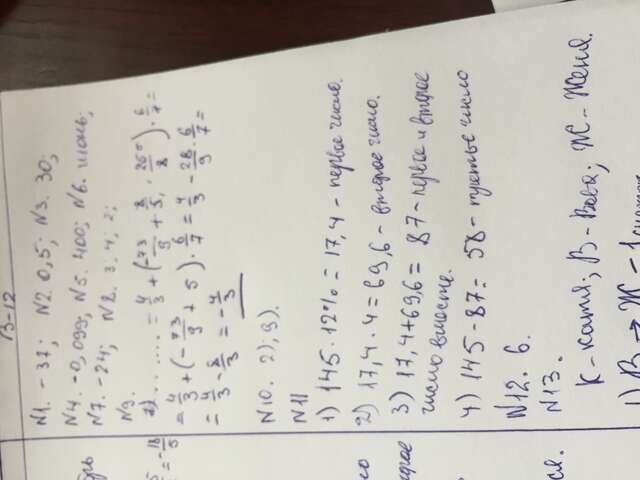 В-12
N1. -37; N2. 0,5; N3. 30;
N4. -0,099; N5. 400; N6. июнь;
N7. -24; N8. 3; 4; 2;
N9.
= 4/3 + (-73/9 + 5) · 6/7 = 4/3 - 28/9 · 6/7 =
= 4/3 - 8/3 = -4/3
N10. 2); 3).
N11
1) 145 · 12% = 17,4 - первое число.
2) 17,4 · 4 = 69,6 - второе число.
3) 17,4 + 69,6 = 87 - первое и второе
число вместе.
4) 145 - 87 = 58 - третье число
N12. 6.
N13.
К - Катя; В - Вова; Ж - Женя.
1) В → Ж - 1